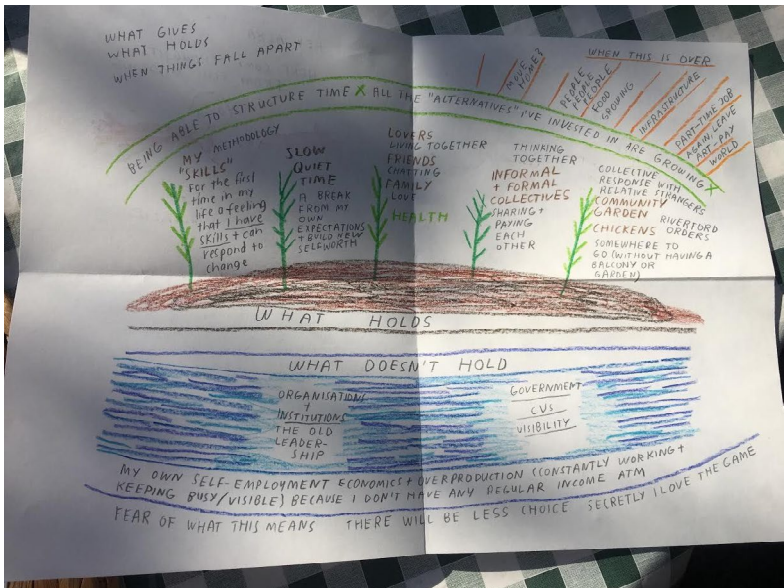 WHAT GIVES
WHAT HOLDS
WHEN THINGS FALL APART
WHEN THIS IS OVER
MOVE
HOME?
PEOPLE
PEOPLE
PEOPLE
FOOD
GROWING
INFRASTRUCTURE
PART-TIME JOB
AGAIN, LEAVE
ART-PAY
WORLD
BEING ABLE TO STRUCTURE TIME X ALL THE "ALTERNATIVES" I'VE INVESTED IN ARE GROWING X
MY METHODOLOGY
"SKILLS"
For the first
time in my
life a feeling
that I have
skills + can
respond to
change
SLOW
QUIET
TIME
A BREAK
FROM MY
OWN
EXPECTATIONS
+ BUILD NEW
SELFWORTH
LOVERS
LIVING TOGETHER
FRIENDS
CHATTING
FAMILY
LOVE
HEALTH
THINKING
TOGETHER
INFORMAL
+ FORMAL
COLLECTIVES
SHARING +
PAYING
EACH
OTHER
COLLECTIVE
RESPONSE WITH
RELATIVE STRANGERS
COMMUNITY
GARDEN
CHICKENS
RIVERFORD
ORDERS
SOMEWHERE TO
GO (WITHOUT HAVING A
BALCONY OR
GARDEN)
WHAT HOLDS
WHAT DOESN'T HOLD
ORGANISATIONS
+
INSTITUTIONS
THE OLD
LEADER-
SHIP
GOVERNMENT
CVS
VISIBILITY
MY OWN SELF-EMPLOYMENT ECONOMICS + OVERPRODUCTION (CONSTANTLY WORKING +
KEEPING BUSY/VISIBLE) BECAUSE I DON'T HAVE ANY REGULAR INCOME ATM
FEAR OF WHAT THIS MEANS THERE WILL BE LESS CHOICE SECRETLY I LOVE THE GAME